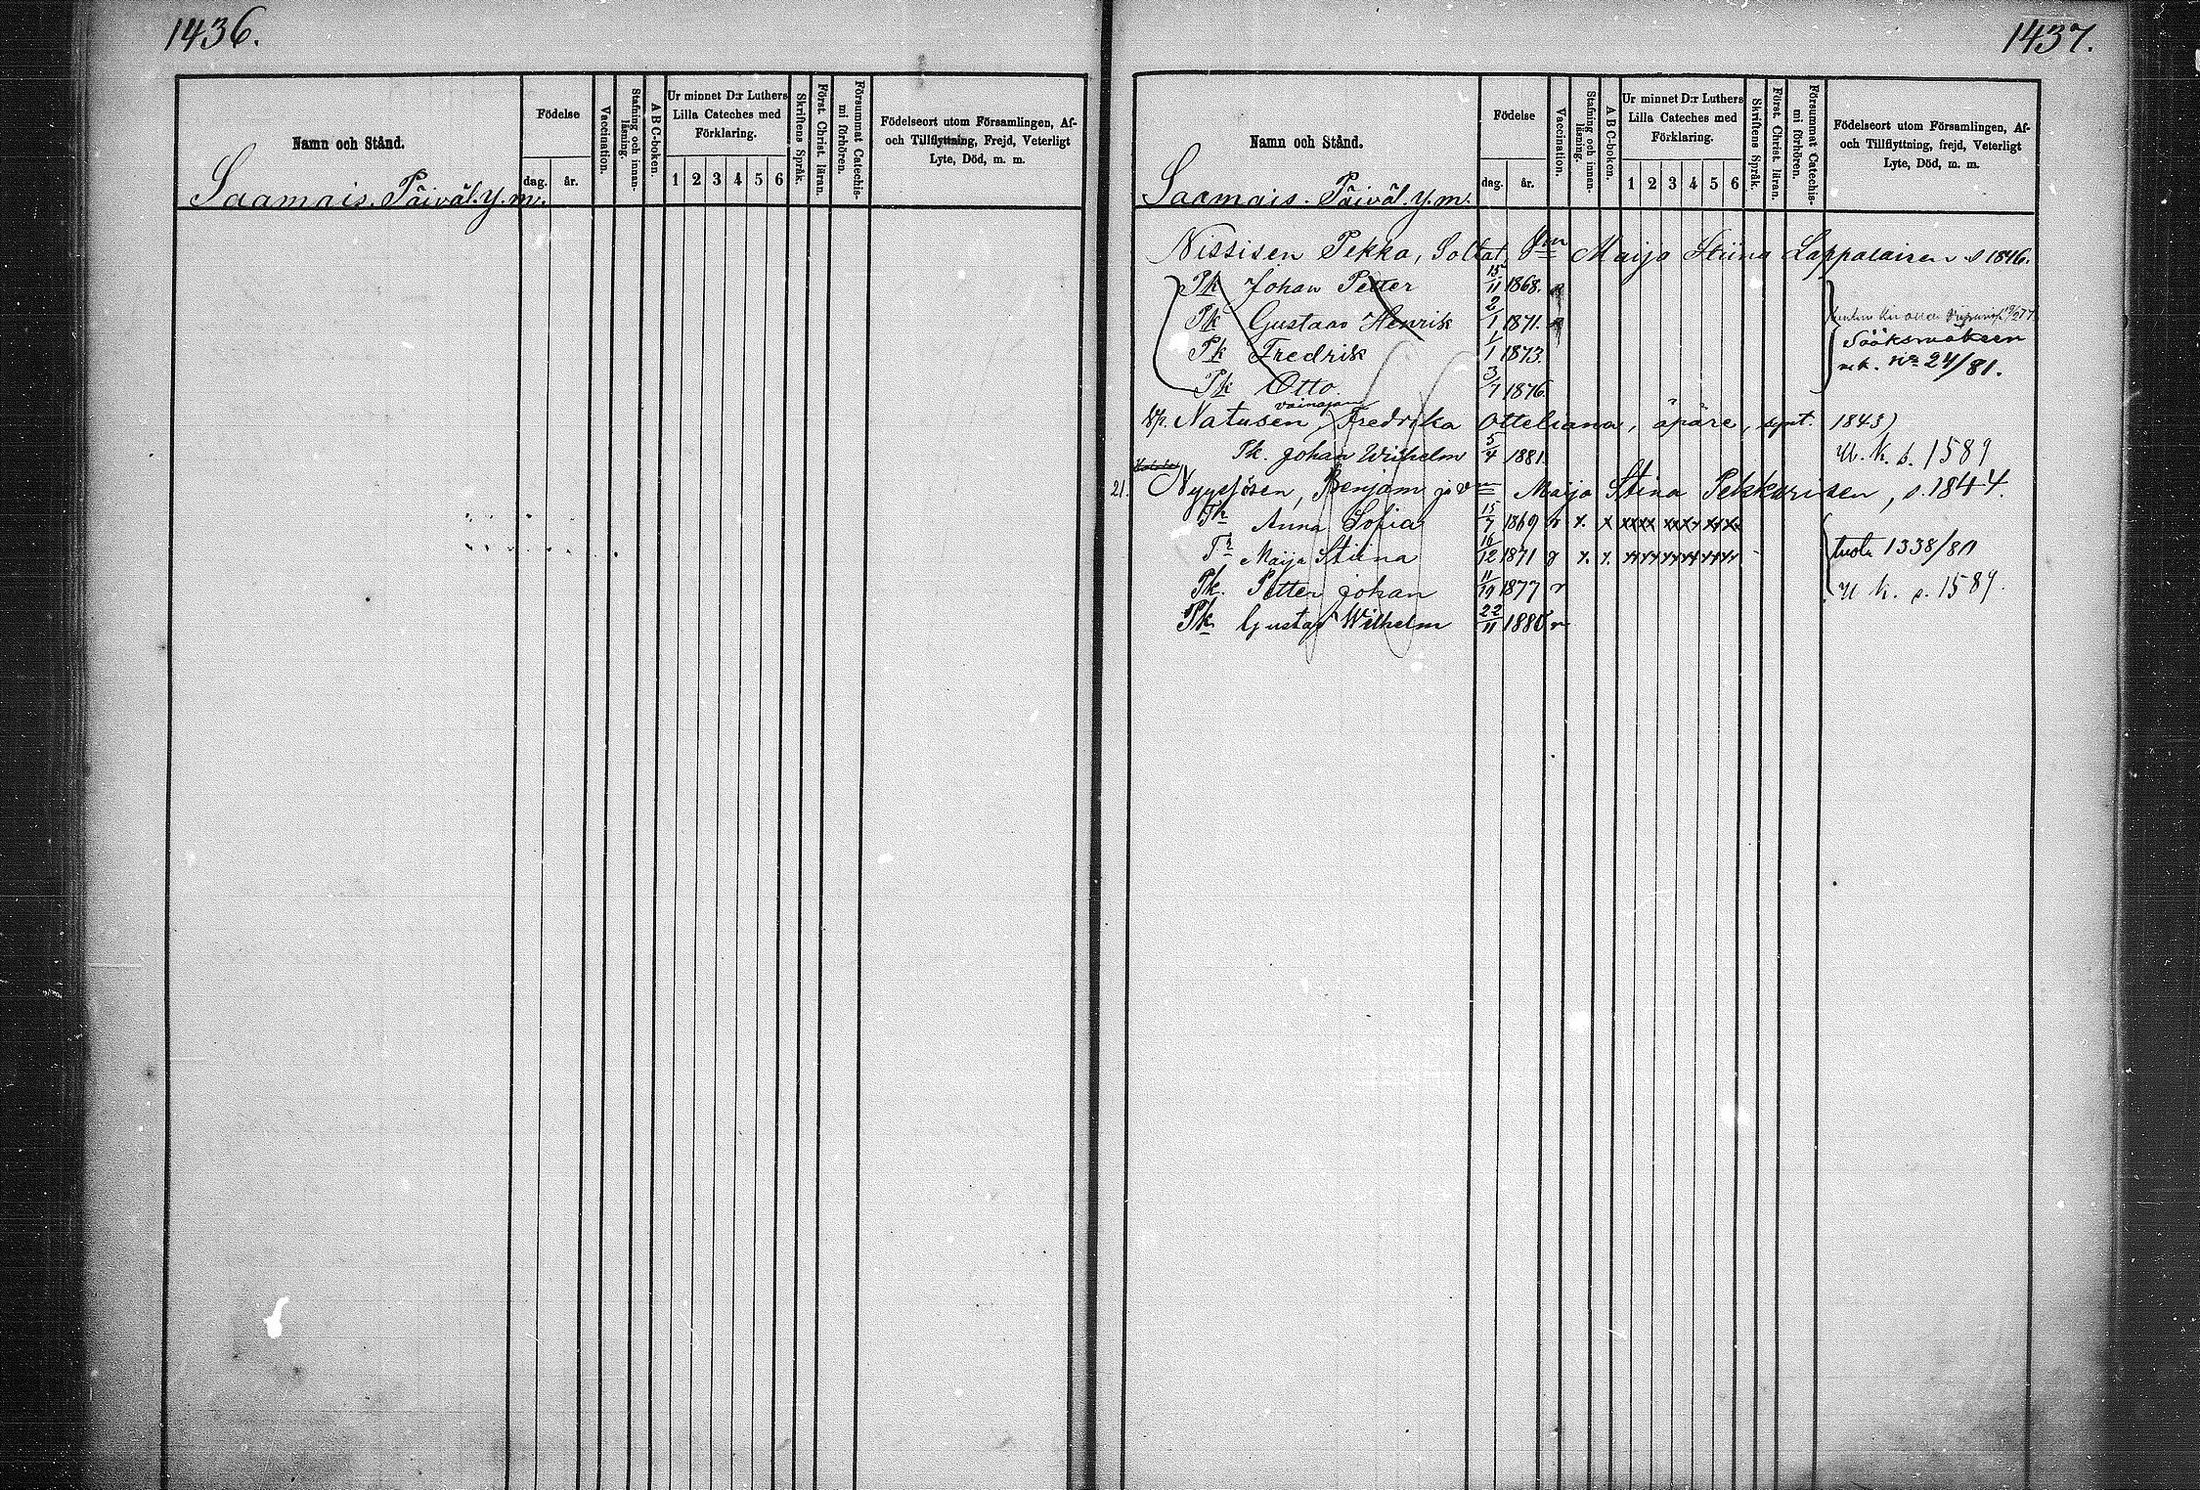 1436.
Namn och Stånd.
Födelse
dag. år.
Vaccination.
Stafning och innanläsning.
A B C-boken.
Ur minnet D:r Luthers Lilla Cateches med Förklaring.
1 2 3 4 5 6
Skriftens Språk.
Först. Christ. läran.
Försummat Catechismi förhören.
Födelseort utom Församlingen, Af-
och Tillflyttning, Frejd, Veterligt
Lyte, Död, m. m.
Saamais. Päiväl. y. m.
1437.
Namn och Stånd.
Födelse
dag. år.
Vaccination.
Stafning och innanläsning.
A B C-boken.
Ur minnet D:r Luthers Lilla Cateches med Förklaring.
1 2 3 4 5 6
Skriftens Språk.
Först. Christ. läran.
Försummat Catechismi förhören.
Födelseort utom Församlingen, Af-
och Tillflyttning, frejd, Veterligt
Lyte, Död, m. m.
Saamais. Päiväl. y. m.
Nissisen Pekka, Soltat, Vm Maija Stiina Lappalainen s 1846.
Pk Johan Petter 15/11 1868.
Pk Gustaav Henrik 2/1 1871.
Pk Fredrik 1/1 1873.
Sääksmäkeen
Pk Otto 3/7 1876.
24/81.
Natusen, Fredrika Otteliana, äpäre, synt. 1843)
Pk. Johan Wilhelm 5/4 1881. U. K. s. 1589
21. Nygrjösen, Benjam ja Vm Maija Stina Pekkarisen, s. 1844.
Tr Anna Sofia 15/7 1869 r x. x xxxx xxx xxx
Tr Maija Stiina 16/12 1871 x. x. tuolta 1338/80
Pk. Petter Johan 1877 r U K. s. 1589.
Pk Gustaf Wilhelm 22/11 1880 r